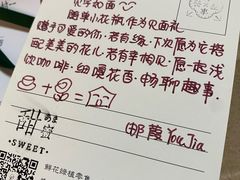 随单小花瓶作为见面礼
赠予可爱的你.若有缘.下次愿为它搭
配美美的花儿.若有幸相见.愿一起浅
饮咖啡.细嗅花香.畅聊趣事.
甜
あま
SWEET
邮葭YouJia
鲜花绿植零售